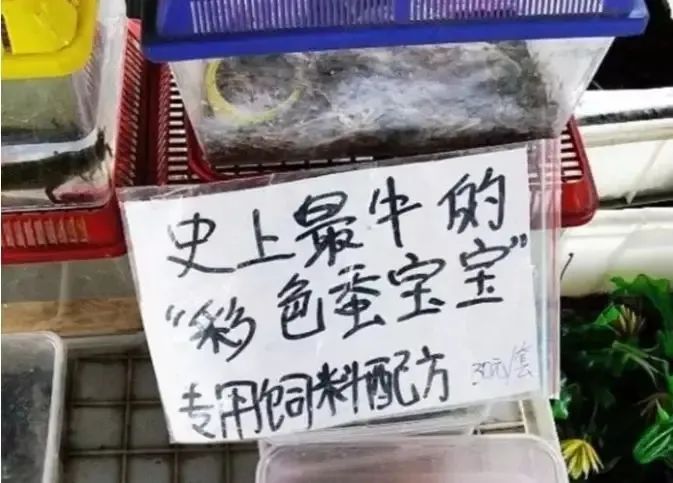 史上最牛的
“彩色蚕宝宝”
专用饲料配方
30元/套